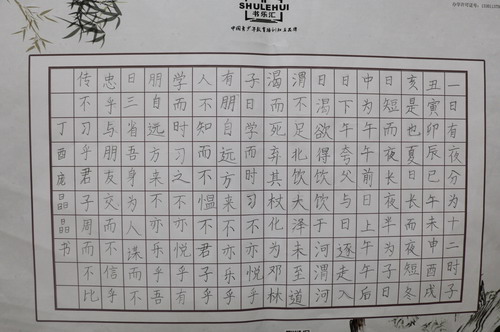 SHULEHUI
书乐汇
中国青少年教育培训知名品牌
一日有夜分为十二时子
丑寅卯辰巳午未申酉戌
亥是也夏日长而夜短冬
日短而夜长夜半为子日
中为午午前日上午午后
日下午夸父与日逐走入
日渴欲得饮饮于河渭河
渭不足北饮大泽未至道
渴而死弃其杖化为邓林
子日学而时习不亦悦乎
有朋自远方来不亦乐乎
人不知而不愠不君子乎
学而时习之不亦悦乎有
朋自远方来不亦乐乎吾
日三省吾身为人谋而不
忠乎与朋友交而不信乎
传不习乎君子周而不比
丁酉庞晶晶书